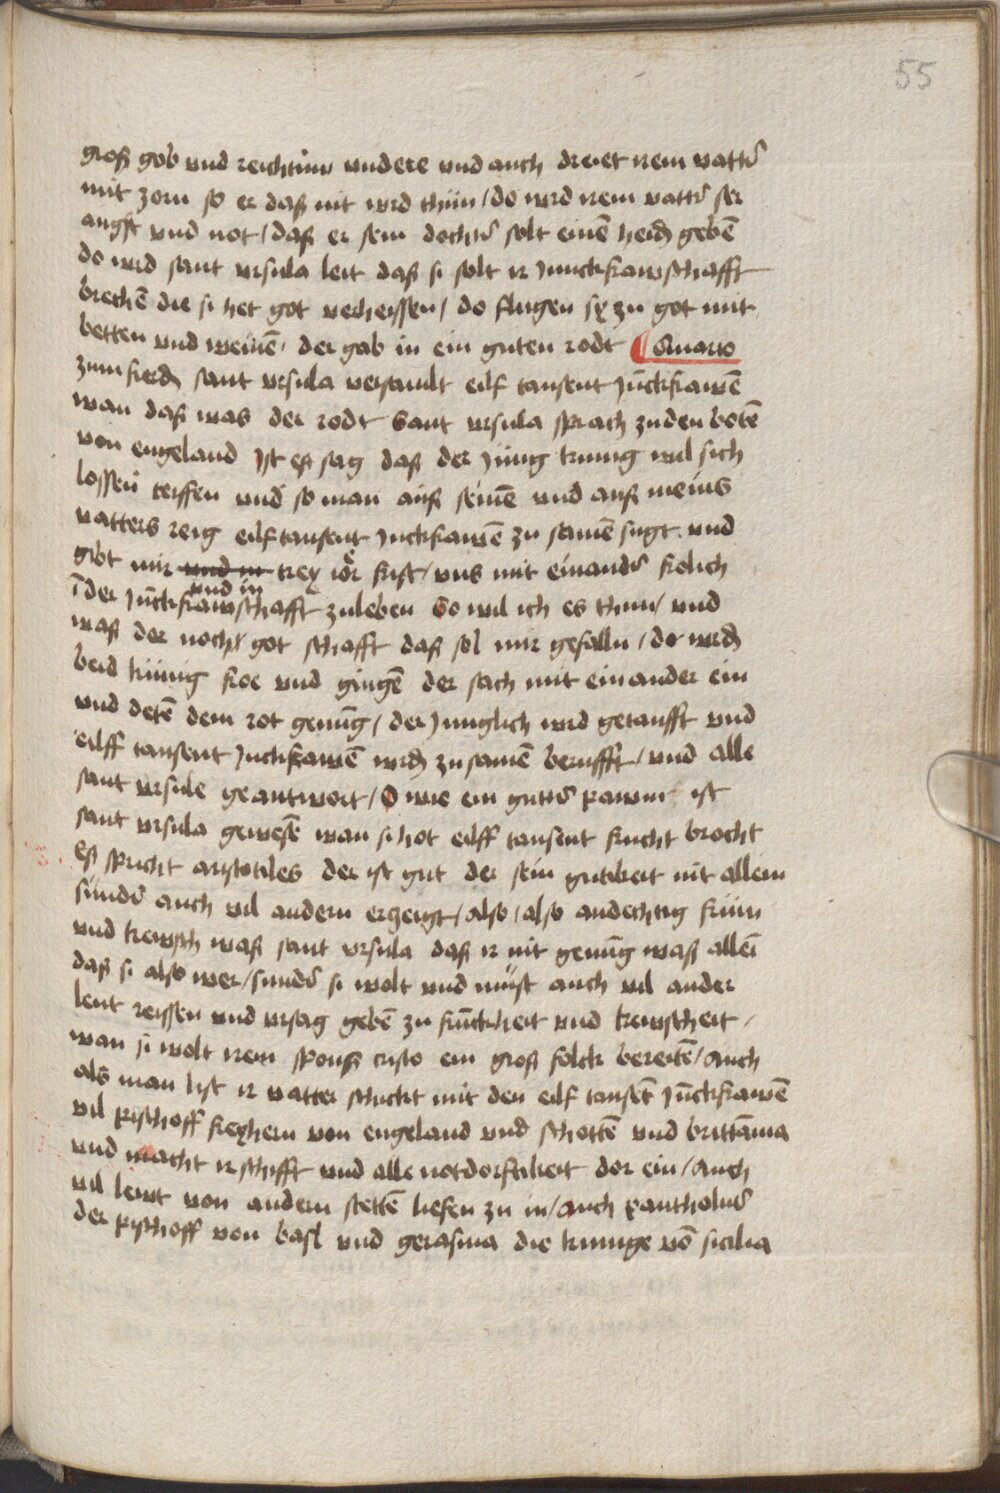 55
groß gob vnd reichtum vndere vnd auch dreiet irem vatter
mit zorn so er daß nit wrd thun / do wrd irem vatter ser
angst vnd not / daß er sein dochter solt einē heidē gebē
do wrd sant vrsula leit daß si solt ir Junckfrawschafft
brechē die si het got verheissen / do flugen sy zu got mit
betten vnd weinē der gab in ein guten rodt Quarto
zum fierdē sant vrsula versamlt eilf tausent Jūckfrawē
wan daß was der rodt Sant vrsula sprach zu den botē
von engeland Ist eß sag daß der Jung kunig wil sich
lossen teiffen vnd so man auß seinē vnd auß meins
vatters reig eilf tausent Juckfrawē zu samē fugt vnd
gibt mir vnd in trey ior frist / vns mit einander frolich
vnd in
ī der Jūckfrawschafft zuleben So wil ich es thun vnd
waß der noch got schafft daß sol mir gefalln / do wrdē
beid kunig froe vnd gingē der sach mit einander ein
vnd detē dem rot genūg / der Junglich wrd getaufft vnd
eilff tausent Juckfrawē wrdē zu samē berufft / vnd alle
sant vrsule geantwort / O wie ein gutter pawm ist
sant vrsula gewesē wan si hot eilff tausent frucht brocht
eß spricht aristotiles der ist gut der sein gutikeit nit allein
sunder auch vil andern erzeigt / also / also andechtig frum
vnd kewsch waß sant vrsula daß ir nit genūg waß allei
daß si also wer / sunder si wolt vnd must auch vil ander
leut reissen vnd vrsag gebē zu frūckheit vnd kewscheit
wan si wolt irem spons cristo ein groß folck bereitē / Auch
als man list ir vatter schickt mit den eilf tausēt Jūckfrawē
vil pischoff freyhern von engeland vnd schottē vnd brittānia
vnd macht ir schifft vnd alle notdorftikeit dor ein / Auch
vil lewt von andern stettē liefen zu in / Auch pantholus
der pischoff von basl vnd gerasina die kunige vō sicilia